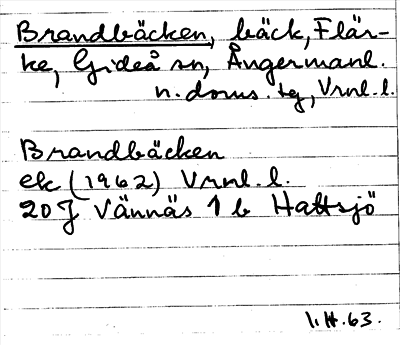 Brandbäcken, bäck, Flär-
ke, Gideå sn, Ångermanl.
n. doms. tg, Vrnl. l.
Brandbäcken
ek (1962) Vrnl. l.
20 J Vännäs 1 b Hattsjö
I.H.63.